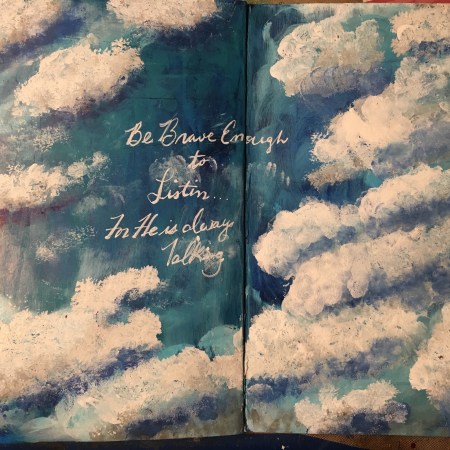 Be Brave Enough
to
Listen...
For He is alway
Talking